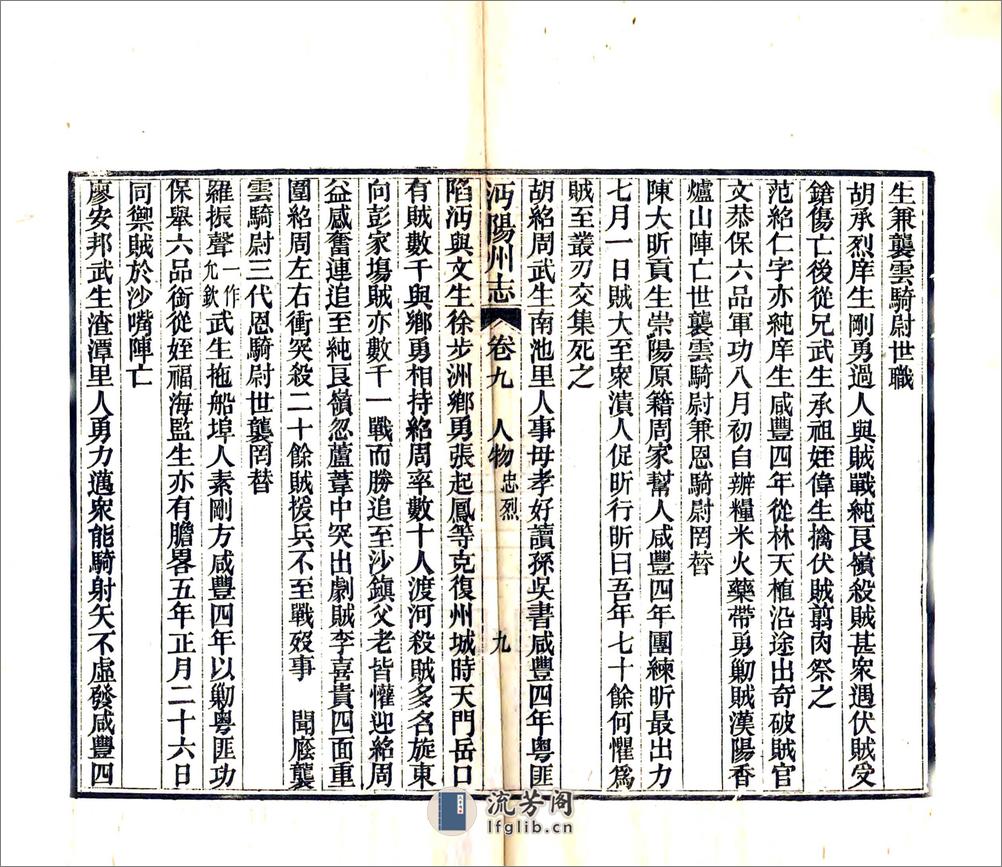 生兼襲雲騎尉世職
胡承烈庠生剛勇過人與賊戰純良嶺殺賊甚衆遇伏賊受
鎗傷亡後從兄武生承祖姪偉生擒伏賊翦肉祭之
范紹仁字亦純庠生咸豐四年從林天植沿途出奇破賊官
文恭保六品軍功八月初自辦糧米火藥帶勇勦賊漢陽香
爐山陣亡世襲雲騎尉兼恩騎尉罔替
陳大昕貢生崇陽原籍周家幫人咸豐四年團練昕最出力
七月一日賊大至衆潰人促昕行昕曰吾年七十餘何懼爲
賊至叢刃交集死之
胡紹周武生南池里人事毋孝好讀孫吳書咸豐四年粵匪
沔陽州志 卷九 人物 忠烈 九
陷沔與文生徐步洲鄉勇張起鳳等克復州城時天門岳口
有賊數千與鄉勇相持紹周率數十人渡河殺賊多名旋東
向彭家塲賊亦數千一戰而勝追至沙鎮父老皆懽迎紹周
益感奮連追至純良嶺忽蘆葦中突出劇賊李喜貴四面重
圍紹周左右衝突殺二十餘賊援兵不至戰歿事 聞廕襲
雲騎尉三代恩騎尉世襲罔替
羅振聲一作允欽武生拖船埠人素剛方咸豐四年以勦粵匪功
保舉六品銜從姪福海監生亦有膽畧五年正月二十六日
同禦賊於沙嘴陣亡
廖安邦武生渣潭里人勇力邁衆能騎射矢不虛發咸豐四
流芳阁
lfglib.cn